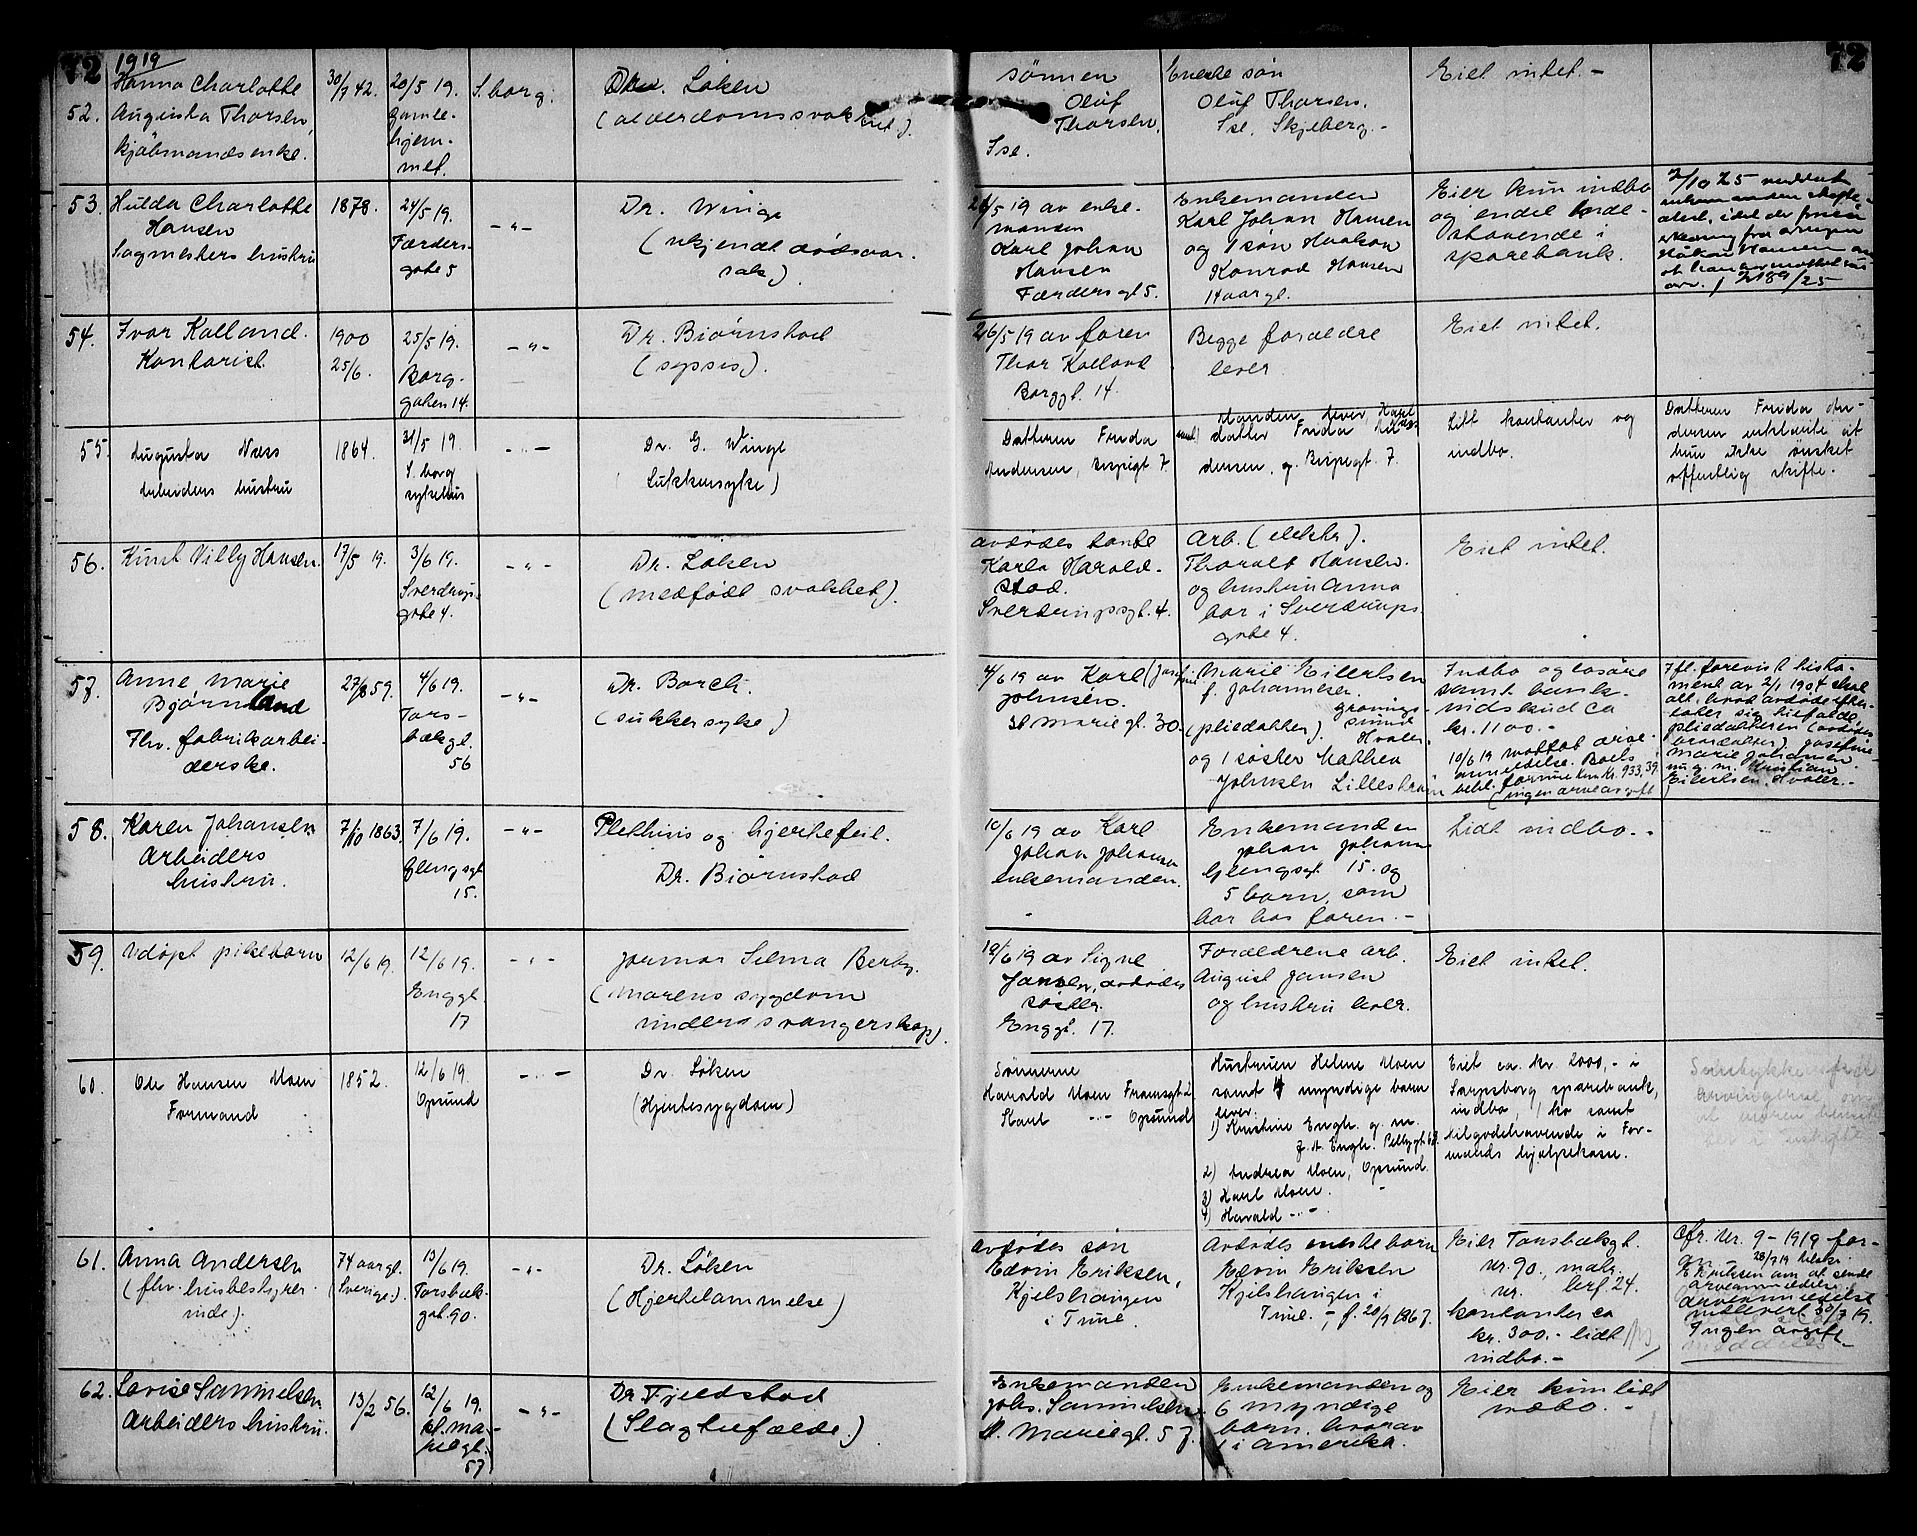 72
1919
72
52.
Hanna Charlotte
Augusta Thorsen,
kjøbmandsenke.
30/7 42.
20/5 19.
Gamle-
hjem-
met.
S.borg.
Dr. Løken
(alderdomssvakhet).
sønnen
Oluf
Thorsen,
Ise.
Eneste søn
Oluf Thorsen.
Ise, Skjeberg.-
Eiet intet.-
53.
Hulda Charlotte
Hansen
Sagmesters hustru
1878.
24/5 19.
Færders-
gate 5
-"-
Dr. Winge
(ukjendt dødsaar-
sak)
/5 19 av enke-
manden
Karl Johan
Hansen
Færdersgt 5.
Enkemanden
Karl Johan Hansen
og 1 søn Haakon
Konrad Hansen
14 aar gl.
Eier kun indbo
og endel inde-
staaende i
sparebank.
2/10 25 meddelt
enkemanden skifte-
attest, idet der forelå
erklæring fra arvingen
Håkon Hansen om
at han har mottat sin
arv. J 2189/25
54.
Ivar Kolland.
Kontorist.
1900
25/6.
25/5 19.
Borg-
gaten 14.
-"-
Dr. Bjørnstad
(sepsis).
26/5 19 av faren
Thor Kolland
Borggt. 14.
Begge foræeldre
lever
Eiet intet.
55.
Augusta Næss
Arbeiders hustru
1864.
31/5 19
S.borg
sykehus
-"-
Dr. G. Winge
(Sukkersyke)
Datteren Frida
Andersen, Bispegt 7.
Manden lever, Karl
samt datter Frida An-
dersen, g. Bispegt. 7.
Litt kontanter og
indbo.
Datteren Frida An-
dersen erklærte at
hun ikke ønsket
offentlig skifte.
56.
Knut Villy Hansen.
17/5 19.
3/6 19.
Sverdrups-
gate 4.
-"-
Dr. Løken
(medfødt svakhet).
Avdødes tante
Karla Harald-
stad.
Sverdrupsgt. 4.
Arb. (elektr).
Thoralf Hansen.
og hustru Anna
bor i Sverdrups
gate 4.
Eiet intet.
57.
Anne Marie
Bjørnland
Fhv. fabrikarbei-
derske.
27/8 59.
4/6 19.
Tors-
bækgt.
56
-"-
Dr. Borch.
(sukkersyke)
4/6 19 av Karl
Johnsen.
St Mariegt. 30.
Marie Eilertsen
f. Johannesen.
(pliedatter).
Hvaler.
og 1 søster Mathea
Johnsen Lillestrøm
Indbo og løsøre
samt bank-
indskud ca
kr. 1100.-
10/6 19 mottat arve-
anmeldelse. Boets
beh. formue kun kr. 933,39.
(ingen arveavgift
Ifl. forevist testa-
ment av 2/1 1904 skal
alt, hvad avdøde efter-
later sig tilfalde
pliedatteren (avdødes
brordatter) Josefine
Marie Johansen.
nu g. m. Kristian
Eilertsen Hvaler.-
58.
Karen Johansen
Arbeiders
hustru.
7/10 1863.
7/6 19.
Glengsgt
15.
-"-
Plethisis og hjertefeil.
Dr. Bjørnstad
10/6 19 av Karl
Johan Johansen
enkemanden.
Enkemanden
Johan Johansen
Glengsgt. 15. og
5 barn, som
bor hos faren.-
Lidt indbo.-
59.
Udøpt pikebarn
12/6 19.
12/6 19.
Enggt.
17
-"-
Jormor Selma Berby.
(Morens sygdom
under svangerskap).
12/6 19 av Signe
Jansen, avdødes
søster.
Enggt. 17.
Forældrene arb.
August Jansen
og hustru lever.
Eiet intet.
60.
Ole Hansen Moen
Formand
1852.
12/6 19.
Opsund
-"-
Dr. Løken
(Hjertesygdom)
Sønnerne
Harald Moen Framsgt 2
Karl -"- Opsund
Hustruen Helene Moen
samt 4 myndige barn
lever:
1) Kristine Engh. g. m.
2) Andrea Moen, Opsund.
3) Karl Moen.
4) Harald -"-
Eiet ca. kr. 2000,- i
Sarpsborg sparebank,
indbo, 1 ko samt
tilgodehavende i For-
mands hjælpekasse.
61.
Anna Andersen
(fhv. husbestyrer-
inde).
74 aar gl.
(Sverige.)
13/6 19.
Torsbæk-
gat. 90.
-"-
Dr. Løken
(Hjertelammelse)
Avdødes søn
Edvin Eriksen,
Kjelshaugen
i Tune.
Avdødes eneste barn
Edvin Eriksen
Kjelshaugen i
Tune.-, f. 20/9 1867.
Eier Torsbækgt.
nr. 90., matr.
nr. brf. 24.
kontanter ca
kr. 300.- lidt
indbo.-
Cfr. nr. 9-1919 for-
an.-
Eriksen om at sende
arveanmeldelse
innlevert 30/7 19.
Ingen avgift-
62.
Lovise Samuelsen
Arbeiders hustru.
13/2 56.
12/6 19.
St. Ma-
riegt.
57
-"-
Dr Fjeldstad
(Slagtilfælde.)
Enkemanden
Johs. Samuelsen
St. Mariegt. 57.
Enkemanden og
6 myndige
barn, hvorav
1 i Amerika.
Eier kun lidt
indbo.-